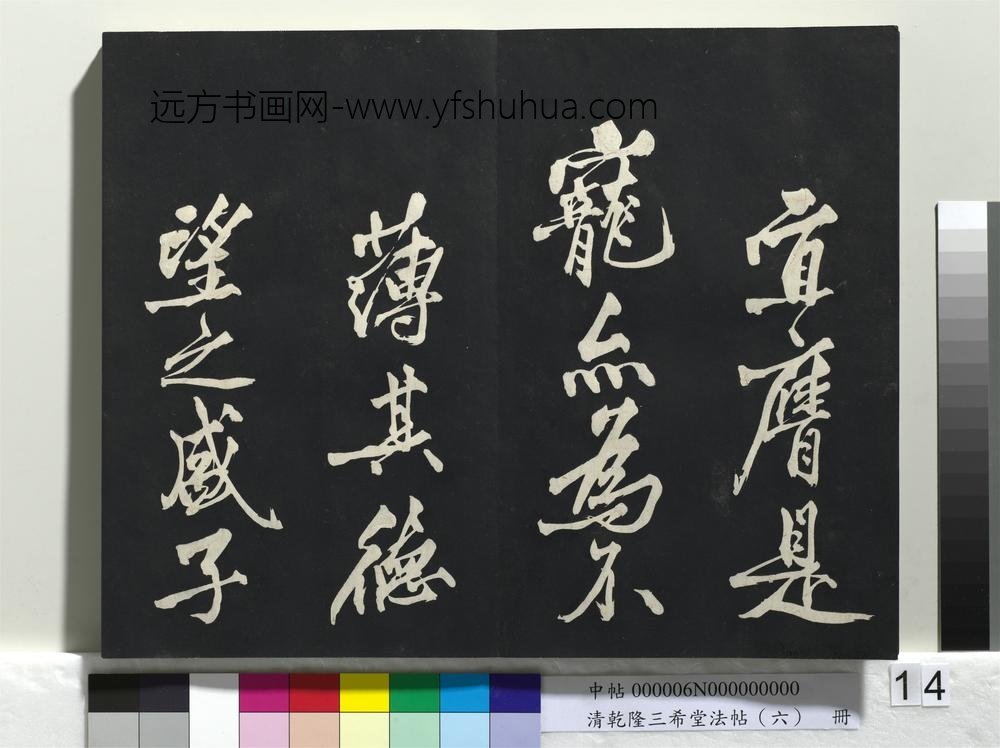 远方书画网-www.yfshuhua.com
宜膺是
寵亦為不
薄其德
望之盛子
中帖 000006N000000000
清乾隆三希堂法帖（六） 冊
14